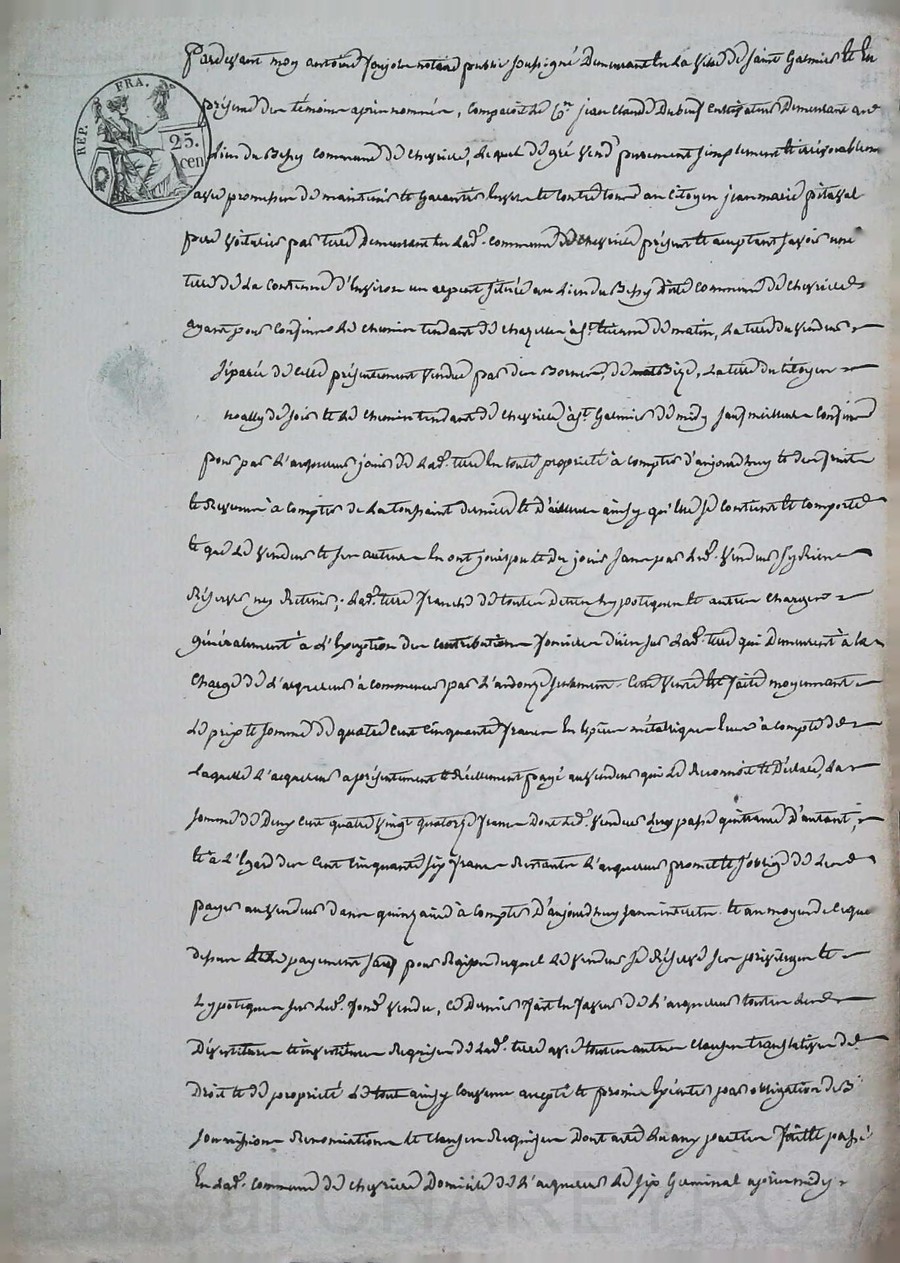 Pardevant moy antoine Joujole notaire public soussigné Demeurant En La ville de Saint Galmier Et En
RÉP. FRA.
25. cen
présence des témoins après nommés, comparoit Le Cen jean Claude Dubeuf Cultivateur Demeurant au
Lieu du Bessy commune de chevrière, Lequel de gré vend purement simplement et irrévocablement
avec promesse de maintenir Et Garantir Envers Et Contre tous au Citoyen jean marie pitaval
père voiturier par terre Demeurant En Lade. commune de chevrière présent Et acceptant savoir une
terre de La contenue d'Environ un arpent située au Lieu du Bessy dite Commune de chevrière
ayant pour Confins Le chemin tendant de chazelle à St. Etienne de matin, La terre du vendeur
séparée de celle présentement vendue par des Bornes, de Bize, La terre du Citoyen
noally de soir Et Le chemin tendant de chevrière à St. Galmier de midy sauf meilleurs Confins
pour par L'acquereur jouir de Lade. terre En toute propriété à compter d'aujourdhuy Et des fruits
Et Revenus à compter de La toussaint dernière Et D'ailleurs ainsy qu'Elle se contient Et comporte
Et que Le vendeur Et ses auteurs En ont joui pu Et Du jouir sans par Led. vendeur s'y Rien
Réserver ney Retenir; Lade. terre franche de toutes Dettes hypotèques Et autres charges
généralement à L'Exception des contributions foncières dües sur Lade. terre qui Demeurent à La
charge de L'acquereur à commencer par L'an onze seulement. Cette vente Est faite moyennant
Le prix Et somme de quatre Cent Cinquante francs En Espèces métalliques sur Et à compte de
Laquelle L'acquereur a présentement Et réellement payé au vendeur qui Le Reconnoit Et Déclare, La
somme de Deux Cent quatre vingt quatorze francs Dont Led. vendeur Luy passe quittance D'autant;
Et à L'égard des Cent Cinquante six francs Restants L'acquereur promet Et s'oblige de Les
payer au vendeur dans quinzaine à compter D'aujourdhuy sans interets. Et au moyen de ce que
dessus payement pour Raison duquel Le vendeur se Réserve son privilège Et
hypotèque sur Led. fond vendu, ce Dernier fait En faveur de L'acquereur toutes Les
Devestiture Et investiture Requises de Lade. terre avec toutes autres Clauses translatives de
Droit Et de propriété Le tout ainsy Convenu accepté Et promis Exécuter par obligation de B
soumissions Renonciations Et Clauses Requises Dont acte Lu aux parties fait Et passé
En Lade. commune de chevrière Domicile de L'acquereur Le six Germinal après midy